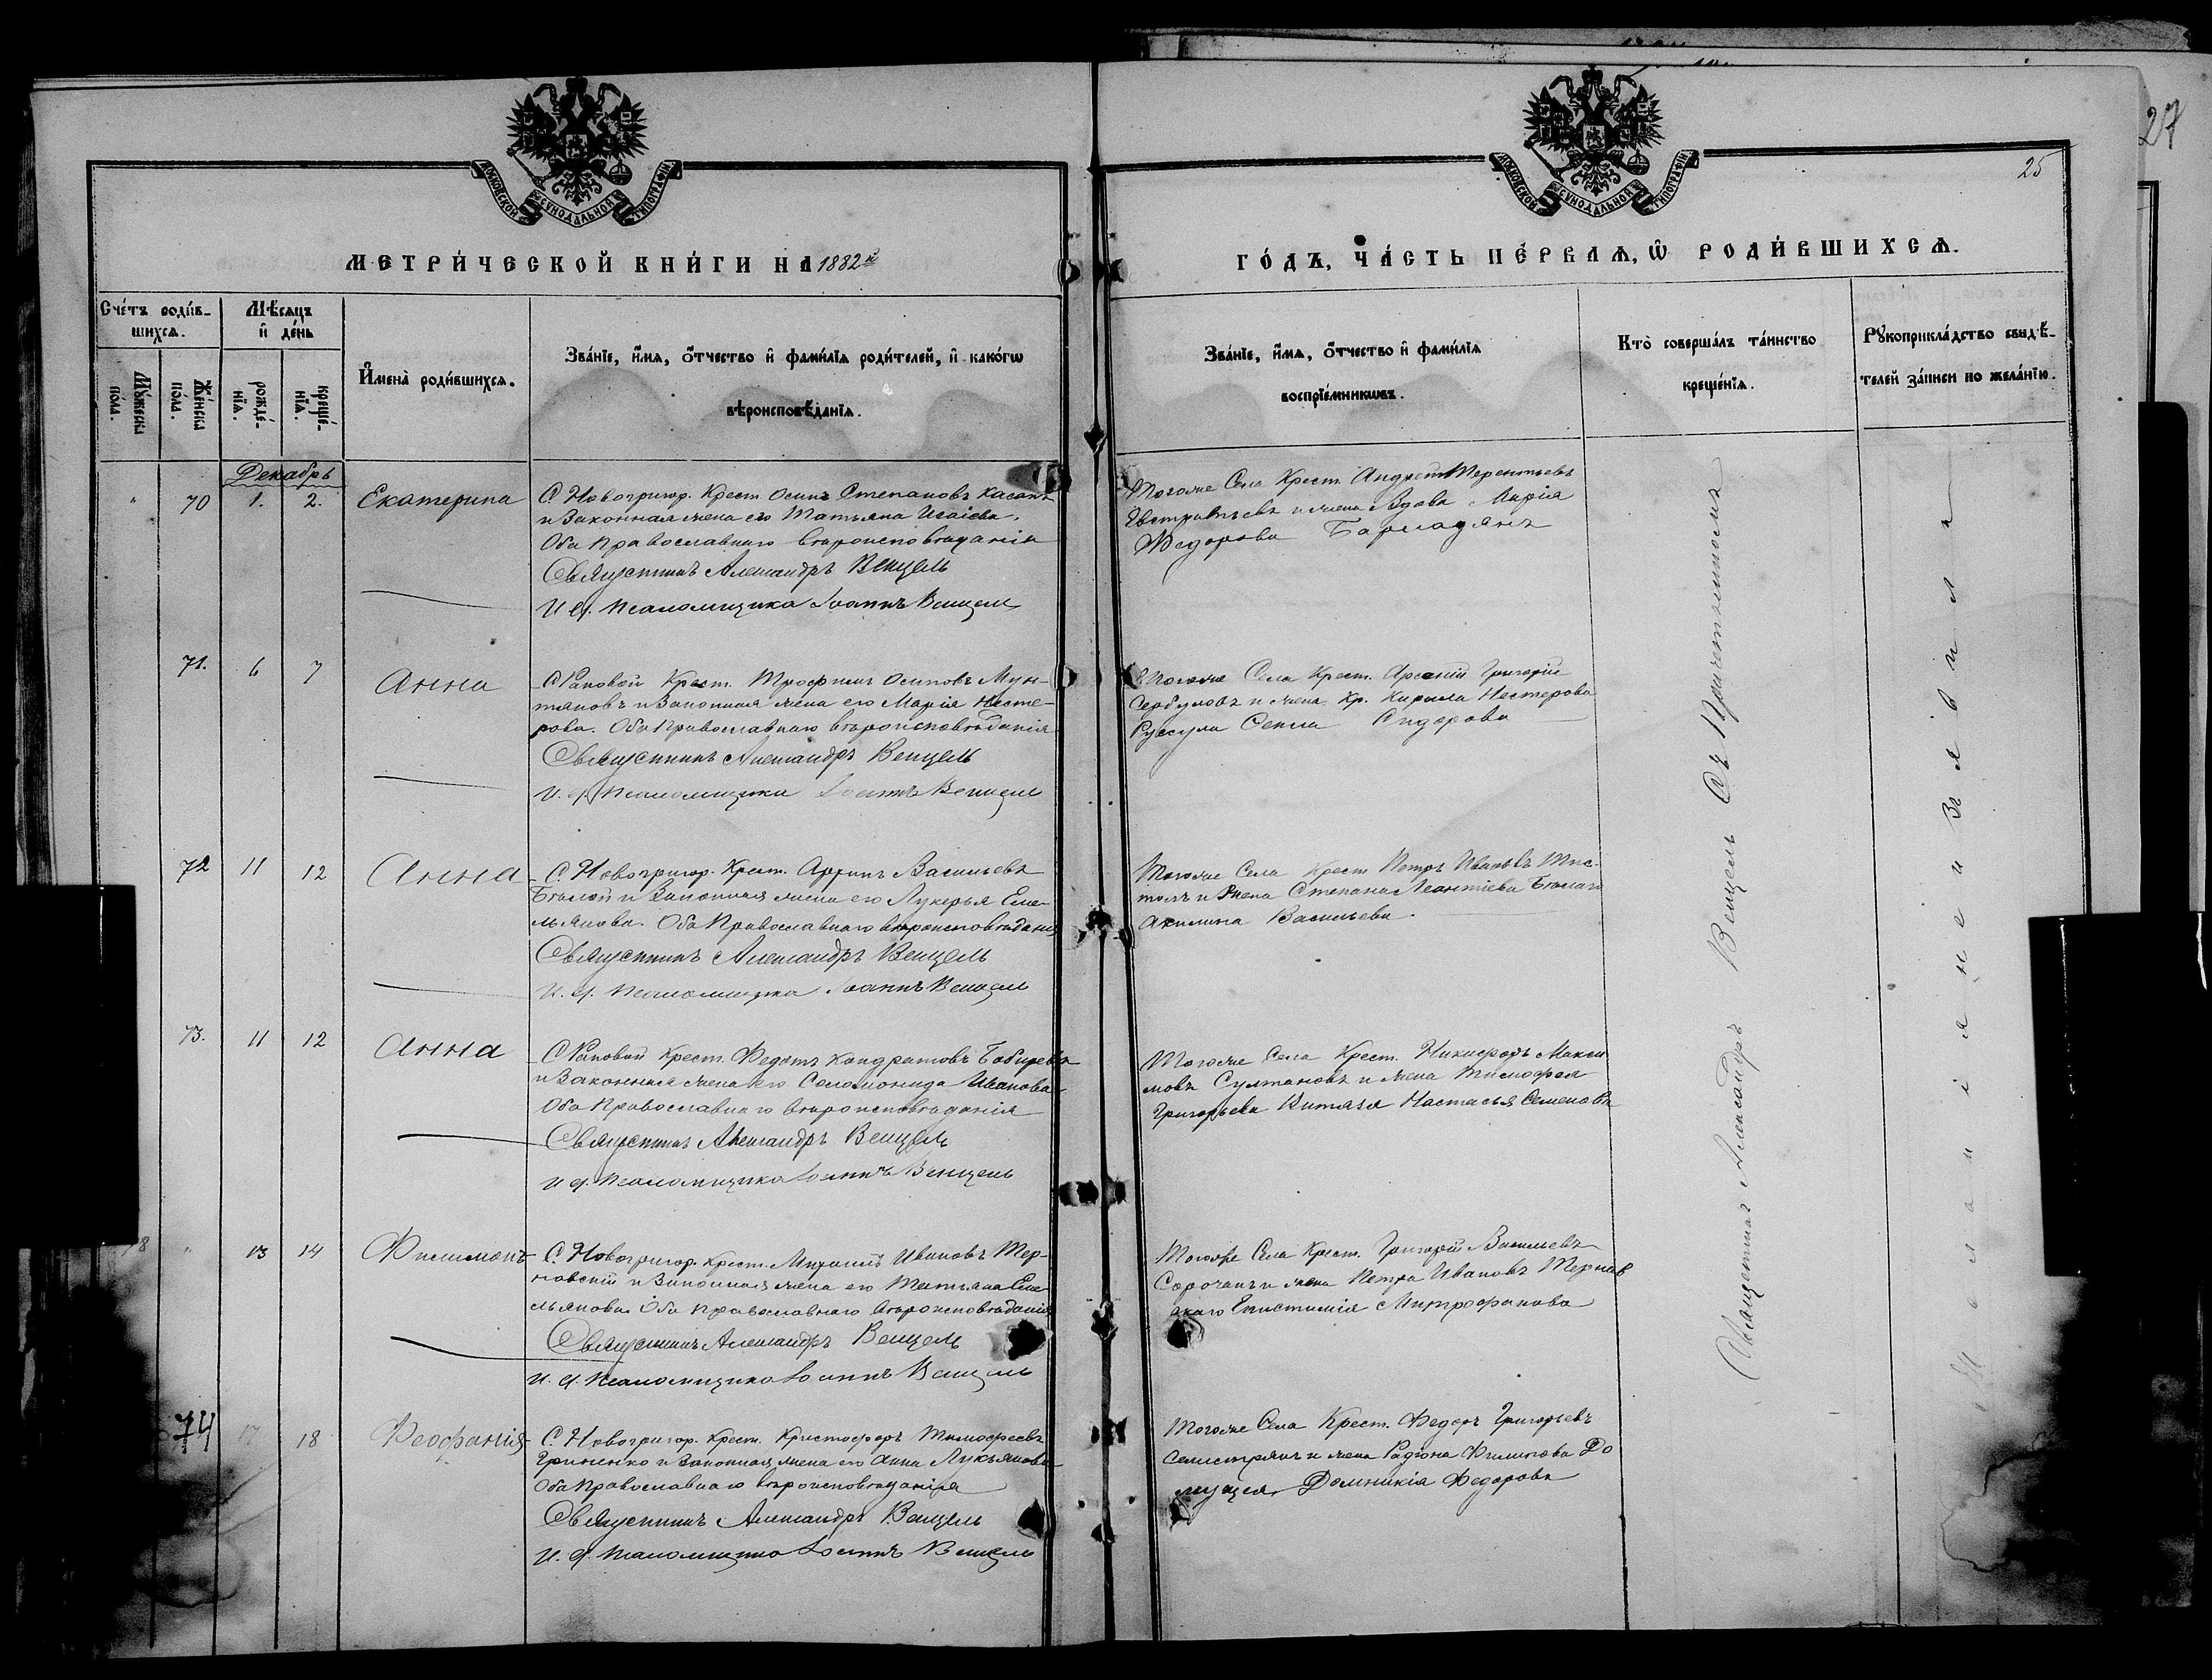 27
25
МОСКОВСКОЙ СѴНОДАЛЬНОЙ ТИПОГРАФІИ
МОСКОВСКОЙ СѴНОДАЛЬНОЙ ТИПОГРАФІИ
МЕТРИ́ЧЕСКОЙ КНИ́ГИ НА 1882й
ГО́ДЪ, ЧА́СТЬ ПЕ́РВАѦ, Ѡ҆ РОДИ́ВШИХСѦ.
Сче́тъ роди́в-
шихсѧ.
Мѣ́сѧцъ
и҆ де́нь
Мꙋ́жеска
по́ла.
Же́нска
по́ла.
рожде́-
нїѧ.
креще́-
нїѧ.
И҆мена̀ роди́вшихсѧ.
Зва́нїе, и҆́мѧ, ѻ҆́тчество и҆ фами́лїѧ роди́телей, и҆ како́гѡ
вѣроисповѣ́данїѧ.
Зва́нїе, и҆́мѧ, ѻ҆́тчество и҆ фами́лїѧ
воспрїе́мникѡвъ.
Кто̀ соверша́лъ та́инство
креще́нїѧ.
Рꙋкоприкла́дство свидѣ́-
телей за́писи по жела́нїю.
Декабрь
" 70 1. 2. Екатерина
С. Новогригор. Крест. Осипъ Степановъ Касапъ
и Законная жена его Татьяна Исаіева.
Оба Православнаго вѣроисповѣданія
Священникъ Александръ Венцель
И. д. псаломщика Іоаннъ Венцель
Тогоже Села Крест. Андрей Терентьевъ
Евстратьевъ и жена Вдова Марія
Федорова
71. 6 7 Анна
С Раповой Крест. Трофимъ Осиповъ Мун-
тяновъ и Законная жена его Марія Несте-
рова. Оба Православнаго вѣроисповѣданія
Священникъ Александръ Венцель
И. д. псаломщика Іоаннъ Венцель
Тогоже Села Крест. Арсеній Григорій
Сербуловъ и жена Кр. Кирила Нестерова
Руссула Сидорова
72 11 12 Анна
С. Новогригор. Крест. Васильевъ
Бѣлой и Законная жена его Лукерья Еме-
льянова. Оба Православнаго вѣроисповѣданія
Священникъ Александръ Венцель
И. д. псаломщика Іоаннъ Венцель
Тогоже Села Крест Петръ Ивановъ
и жена Степана Леонтіева Бѣлаго
Акилина Васильева.
73. 11 12 Анна
С Раповой Крест. Федотъ Кондратовъ Бобырева
и Законная жена его Соломонида Иванова
Оба Православнаго вѣроисповѣданія
Священникъ Александръ Венцель
И д. псаломщика Іоаннъ Венцель
Тогоже Села Крест. Никифоръ Макси
мовъ Султановъ и жена Тимофея
Григорьева Китаза Настасья Семенова
78 " 13 14 Филимонъ
С. Новогригор. Крест. Михаилъ Ивановъ Тер-
новскій и Законная жена его Татьяна Еме
льянова. Оба Православнаго вѣроисповѣданія
Священникъ Александръ Венцель
И. д. псаломщика Іоаннъ Венцель
Тогоже Села Крест. Григорій Васильевъ
Сорочанъ и жена Петра Ивановъ Тернов
скаго Епистимія Митрофанова
74 17 18 Феофанія
С. Новогригор. Крест. Христофоръ Тимофеевъ
Гриненко и Законная жена его Анна Лукьянова
Оба Православнаго вѣроисповѣданія
Священникъ Александръ Венцель
И. д. псаломщика Іоаннъ Венцель
Тогоже Села Крест. Федоръ Григорьевъ
и жена Радіона Филипова
Домникія Федорова
Священникъ Александръ Венцель Съ Причетникомъ
Желанія не изъявили